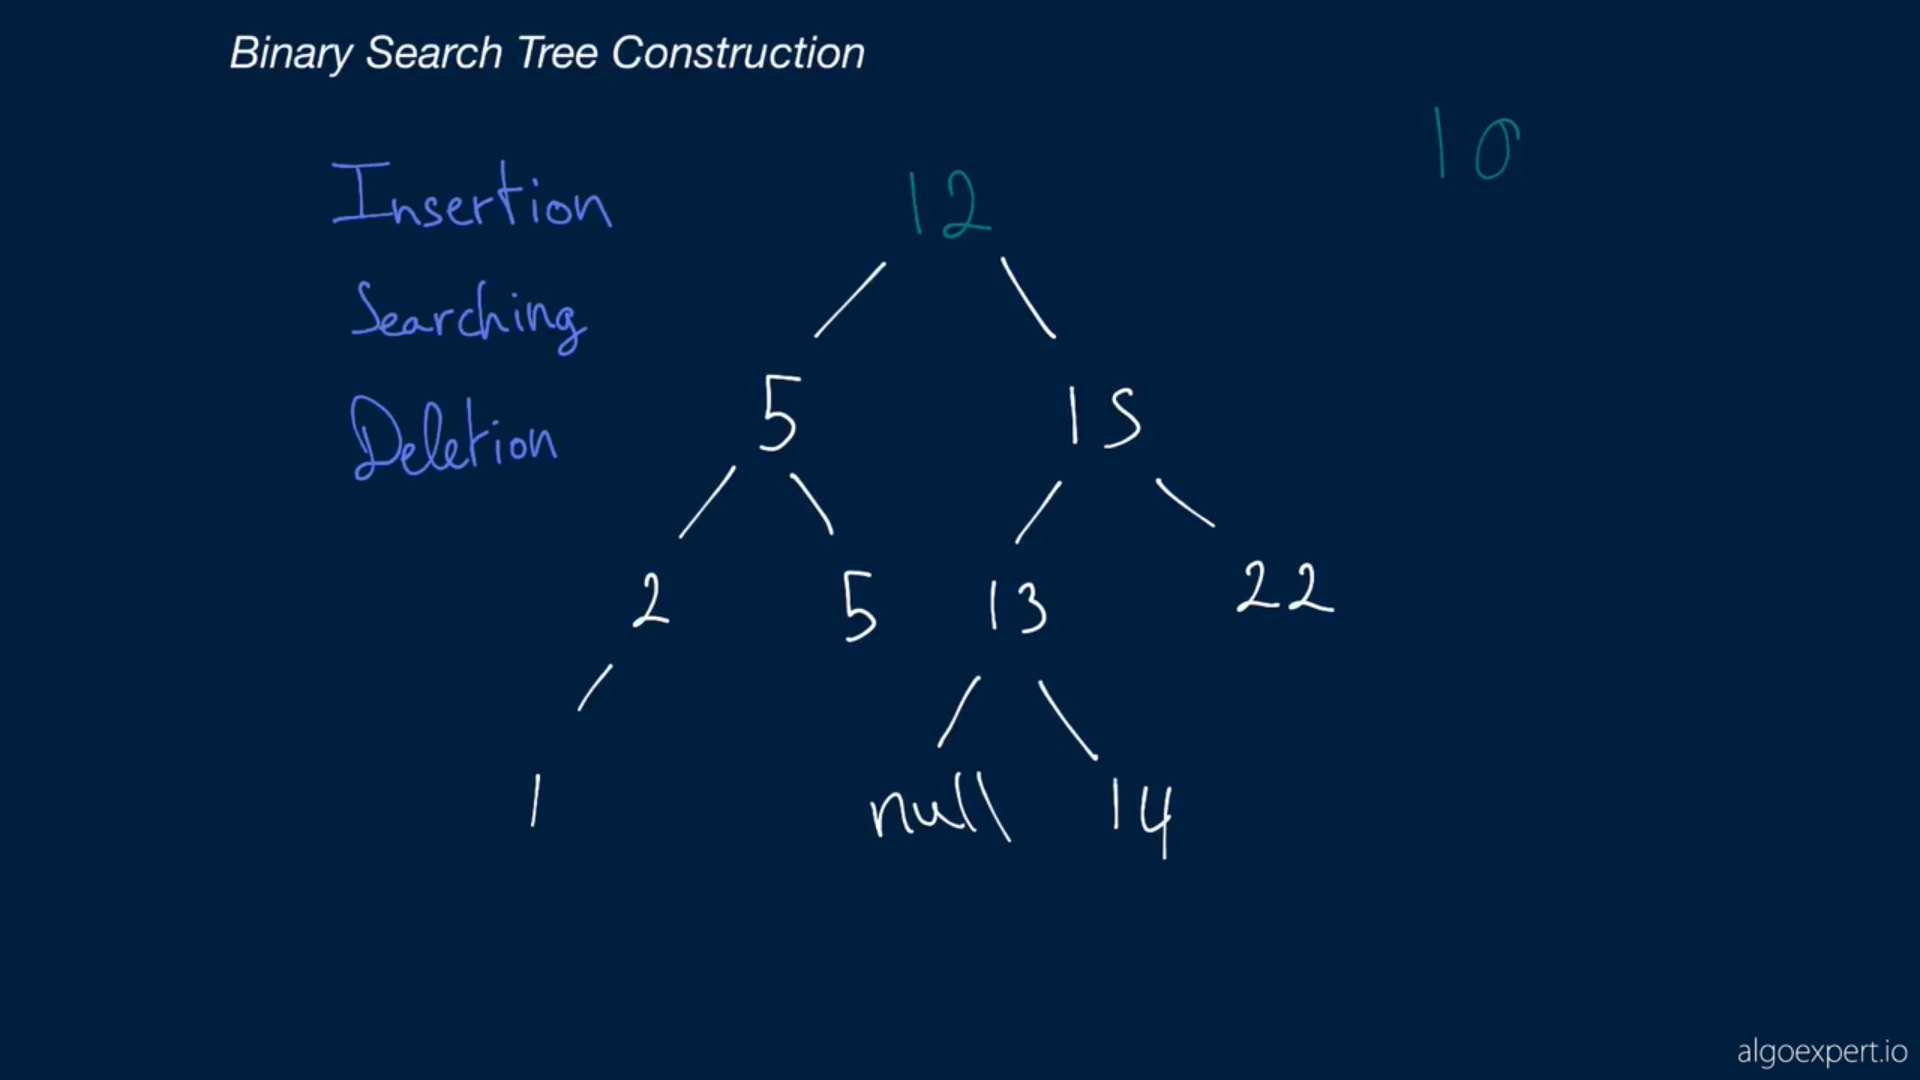 Binary Search Tree Construction
10
Insertion
12
Searching
5 15
Deletion
2 5 13 22
1 null 14
algoexpert.io